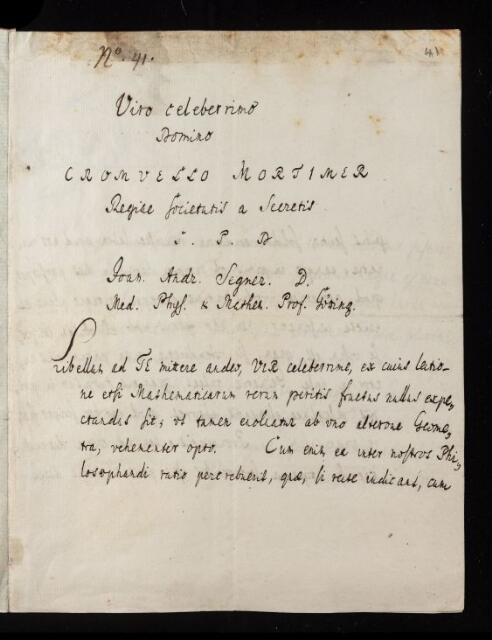 Nº. 41.
41
Viro celeberrimo
Domino
CROMVELLO MORTIMER
Regiae Societatis a Secretis
S. P. D
Joan. Andr. Segner. D.
Med. Phys. & Mathem. Prof. Götting.
Libellum ad TE mittere audeo, VIR celeberrime, ex cuius lectio-
ne etsi Mathematicarum rerum peritis fructus nullus expe-
ctandus sit, vt tamen euoluatur ab vno alteroue Geome-
tra, vehementer opto. Cum enim ea inter nostros Phi-
losophandi ratio percrebuerit, quae, si recte iudicant, cum